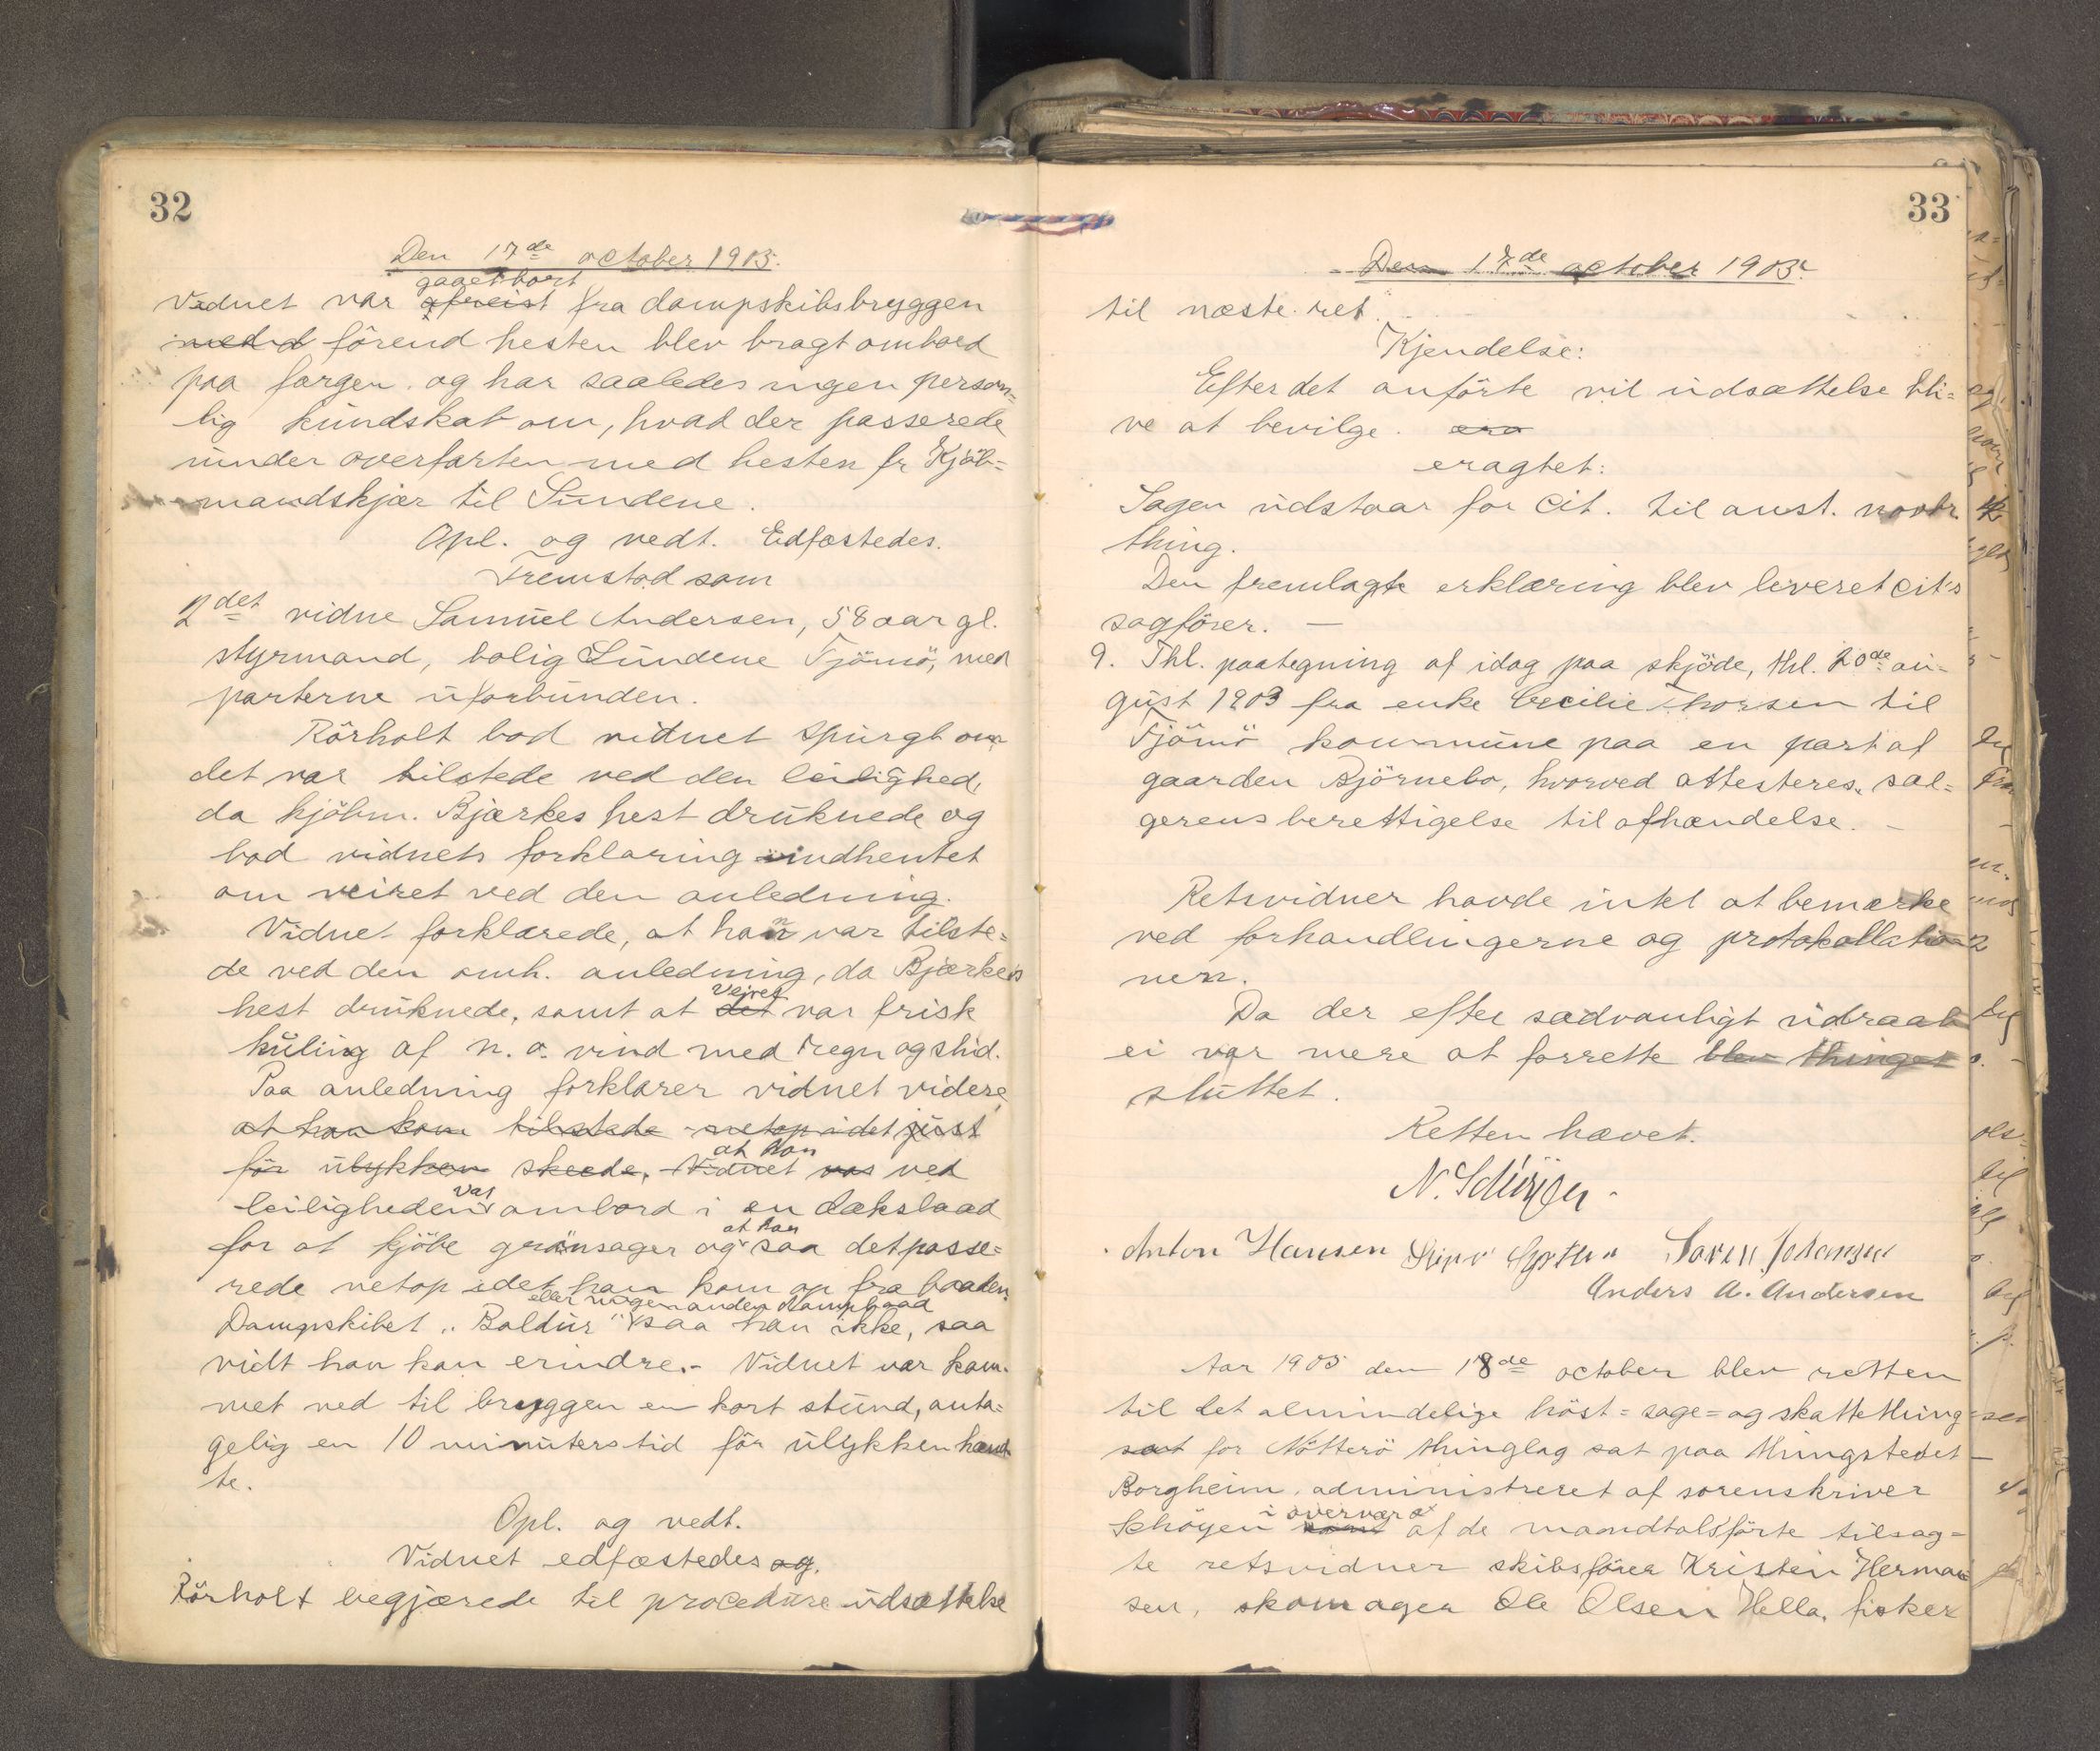 32
Den 17de october 1905.
gaaet bort
Vidnet var afreist fra dampskibsbryggen
med d förend hesten blev bragt ombord
paa færgen og har saaledes ingen person=
lig kundskab om, hvad der passerede
under overfarten med hesten fr Kjöb=
mandskjær til Sundene.
Opl. og vedt. Edfæstedes.
Fremstod som
2det vidne Samuel Andersen, 58 aar gl.
styrmand, bolig Sundene Tjömö, med
parterne uforbunden.
Rörholt bad vidnet spurgt om
det var tilstede ved den leilighed,
da kjöbm. Bjærkes hest druknede og
bad vidnets forklaring indhentet
om veiret ved den anledning.
Vidnet forklarede, at han var tilste=
de ved den omh. anledning, da Bjærkes
veiret
hest druknede, samt at det var frisk
kuling af n. o. vind med regn og slud.
Paa anledning forklarer vidnet videre,
at han kom tilstede netop idet just
at han
för ulykken skeede. Vidnet var ved
var
leiligheden ombord i en dæksbaad
at han
for at kjöbe grönsager og saa det passe=
rede netop idet han kom op fra baaden.
eller nogen anden dampbaad
Dampskibet "Baldur" saa han ikke, saa
vidt han kan erindre. - Vidnet var kom-
met ned til bryggen en kort stund, anta=
gelig en 10 minuters tid för ulykken hænd
te.
Opl. og vedt.
Vidnet edfæstedes og.
Rörholt begjærede til procedure udsættelse
33
Den 17de october 1905.
til næste ret.
Kjendelse:
Efter det anförte vil udsættelse bli=
ve at bevilge. era
eragtet:
Sagen udstaar for cit. til anst. novbr.
thing.
Den fremlagte erklæring blev leveret cit's
sagförer. —
9. Thl. paategning af idag paa skjöde, thl. 20de au=
gust 1903 fra enke Cecilie Thorsen til
Tjömö kommune paa en part af
gaarden Björnebo, hvorved attesteres sæl=
gerens berettigelse til afhændelse. —
Retsvidner havde intet at bemærke
ved forhandlingerne og protokollatio
nen.
Da der efter sædvanligt udraab
ei var mere at forrette blev thinget
sluttet.
Retten hævet.
N. Schöyen
Anton Hansen Soren Johansen
Anders A. Andersen
Aar 1905 den 18de october blev retten
til det almindelige höst= sage= og skattething
sat for Nötterö thinglag sat paa thingstedet
Borgheim, administreret af sorenskriver
i overvær
Schöyen samt af de mandtalsförte tilsag=
te retsvidner skibsförer Kristen Herman
sen, skomager Ole Olsen Hella, fisker